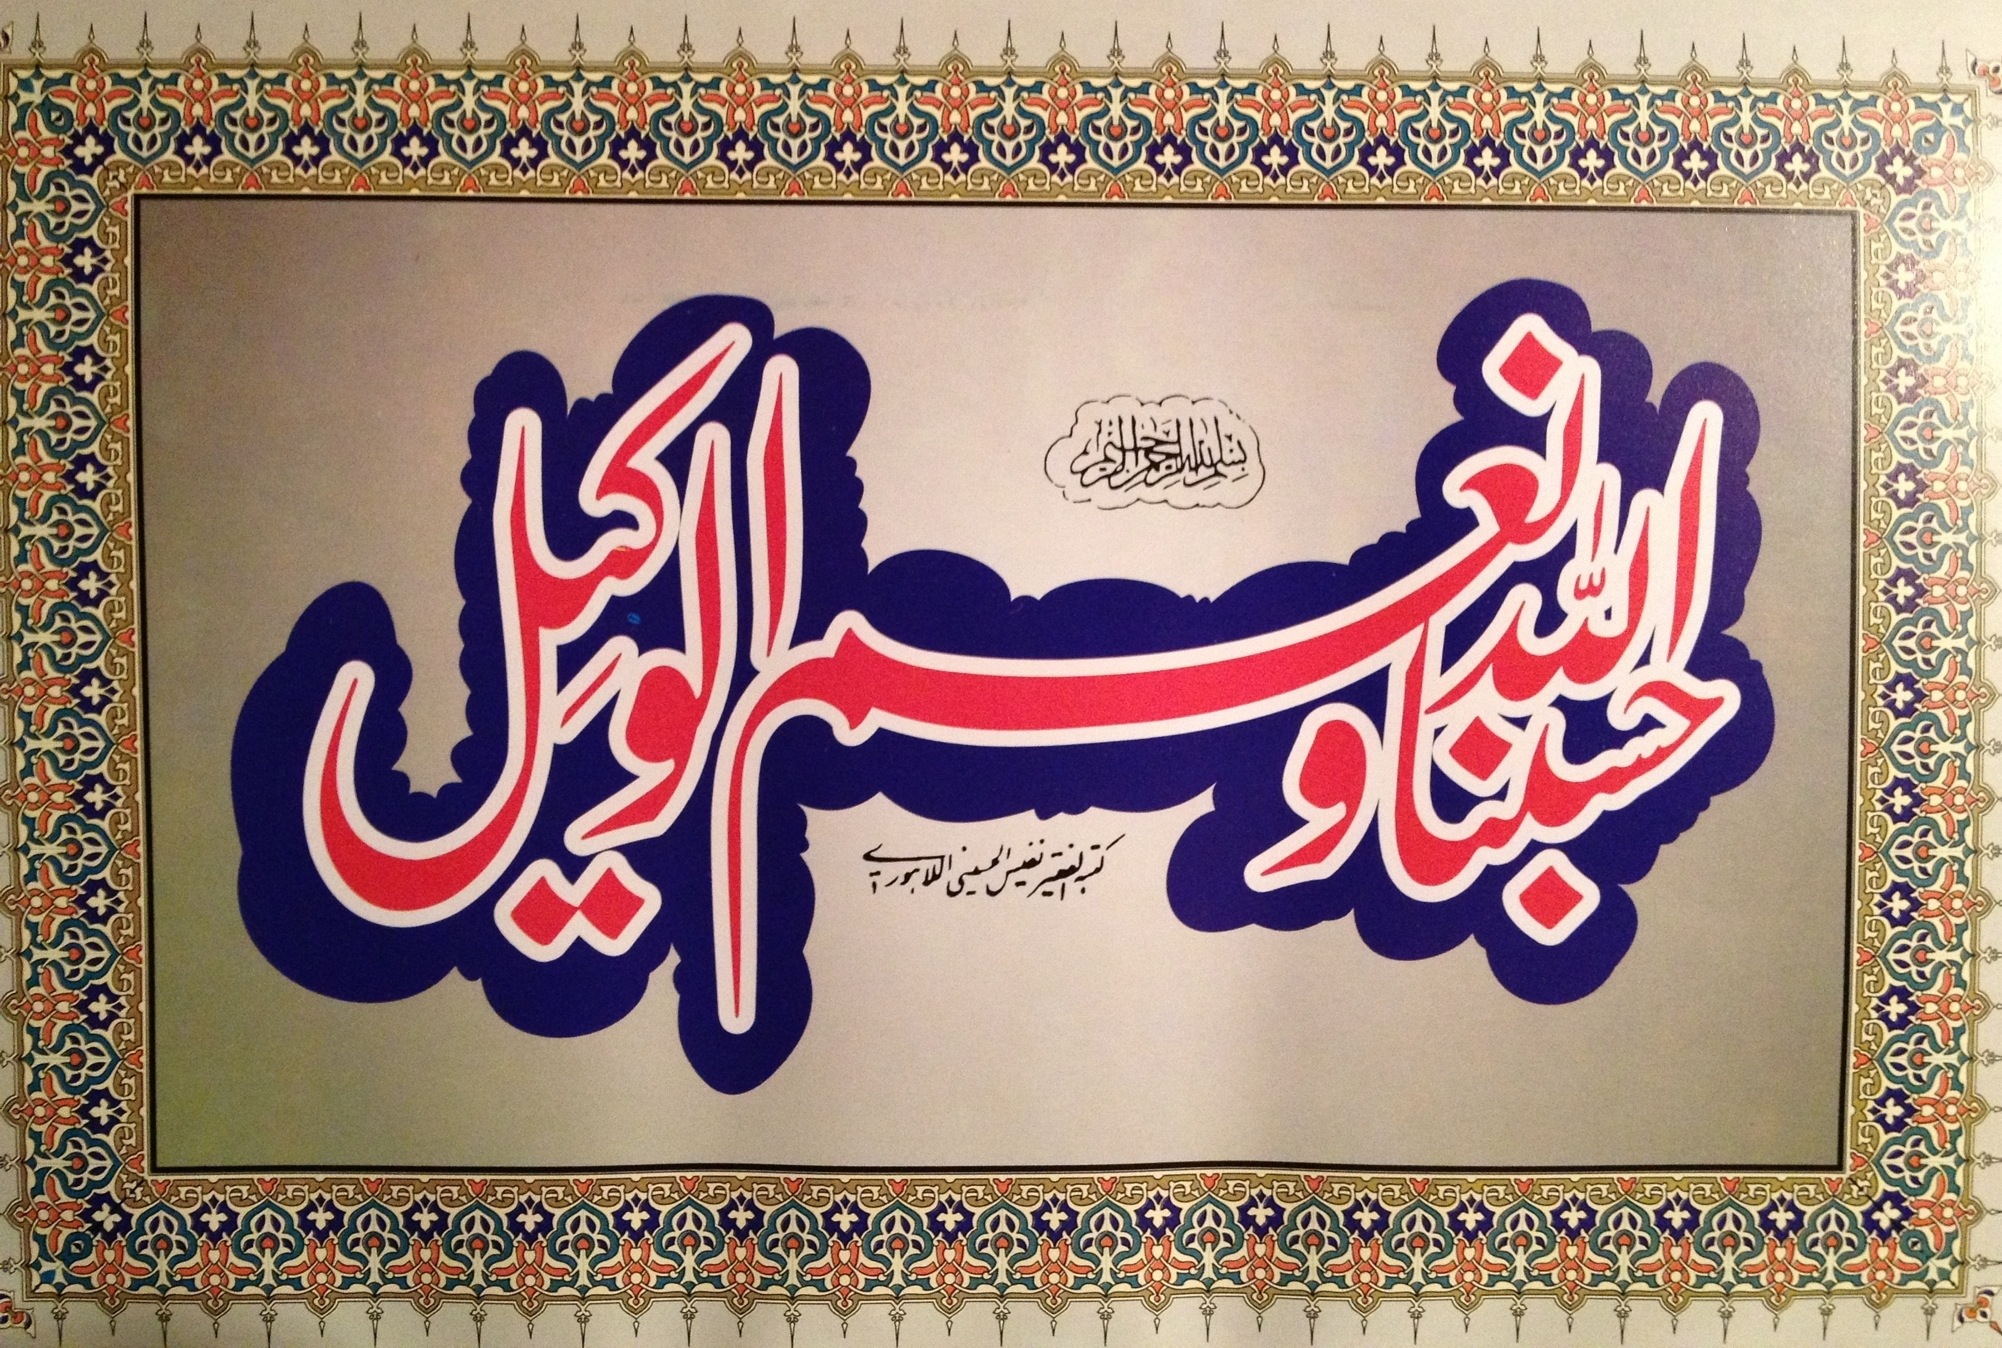 بسم الله الرحمن الرحيم
حسبنا الله ونعم الوكيل
كتبه الفقير نفيس الحسيني اللاهوري